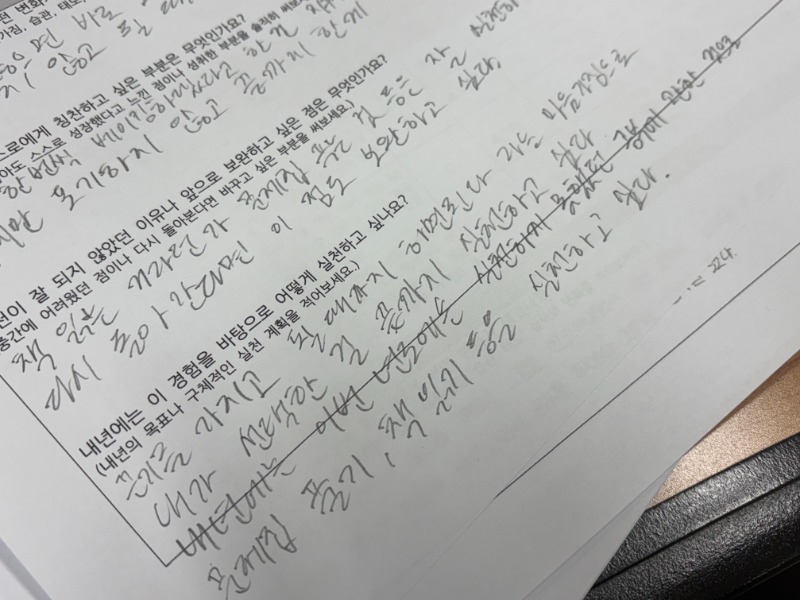 가짐, 습관, 태도,
면 바로
않고 될 때
스로에게 칭찬하고 싶은 부분은 무엇인가요?
아도 스스로 성장했다고 느낀 점이나 성취한 부분을 솔직히 써보세요.
한번씩 베이킹하겠다고 한건
지만 포기하지 않고 끝까지 한게
천이 잘 되지 않았던 이유나 앞으로 보완하고 싶은 점은 무엇인가요?
중간에 어려웠던 점이나 다시 돌아본다면 바꾸고 싶은 부분을 써보세요.)
책 읽는 거라던가 문제집 푸는 것 등은 잘 실천하
다시 돌아간다면 이 점도 보완하고 싶다.
내년에는 이 경험을 바탕으로 어떻게 실천하고 싶나요?
(내년의 목표나 구체적인 실천 계획을 적어보세요.)
끈기를 가지고 될 때까지 해보린다 라는 마음가짐으로
내가 선택한 걸 끝까지 실천하고 싶다
내년에는 이번 년도에는 실천하지 못했던 구부
문제집 풀기, 책 읽기 등을 실천하고 싶다.